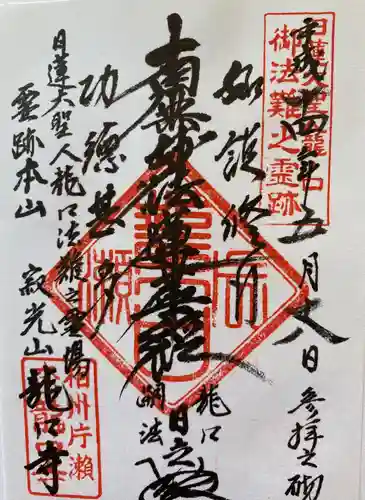 平成十四年五月十八日 参拝之砌
日蓮大聖人龍ノ口
御法難之霊跡
如説修行
南無妙法蓮華経
龍口
嗣法
日立
功徳甚多
日蓮大聖人龍口法難之霊場
霊跡本山 寂光山 龍口寺
相州片瀬